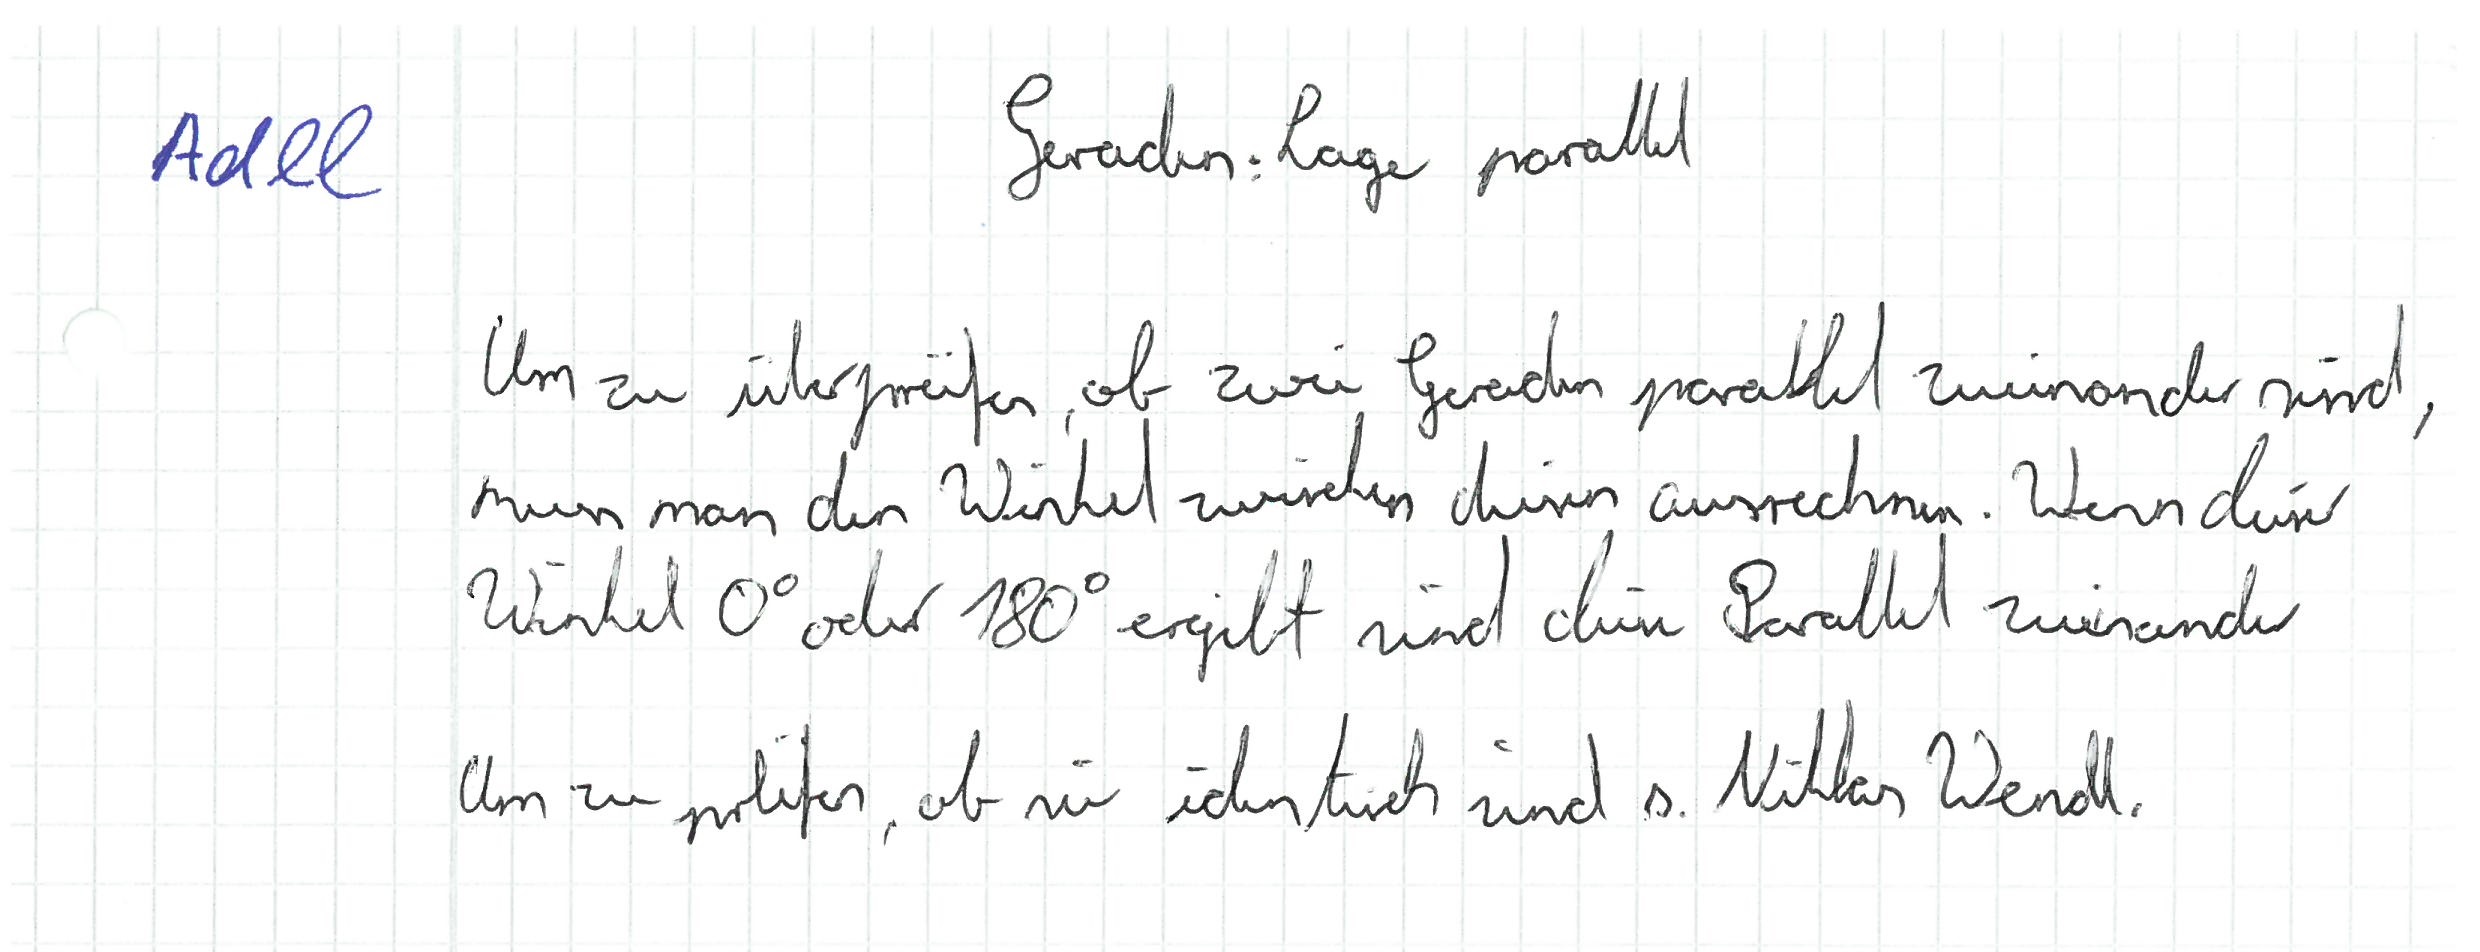 Adell
Geraden: Lage parallel
Um zu überprüfen, ob zwei Geraden parallel zueinander sind,
muss man den Winkel zwischen diesen ausrechnen. Wenn dieser
Winkel 0° oder 180° ergibt sind diese Parallel zueinander
Um zu prüfen, ob sie identisch sind s. Niklas Wendl.